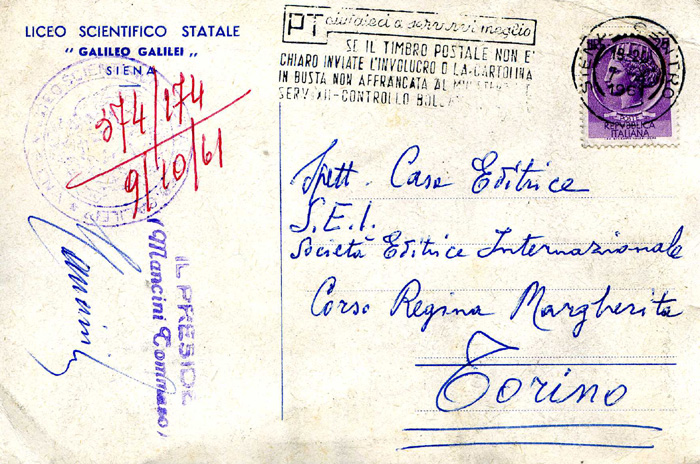 LICEO SCIENTIFICO STATALE
" GALILEO GALILEI "
SIENA
374/174
9/10/61
IL PRESIDE
(Mancini Tommaso)
PT aiutateci a servirvi meglio
SE IL TIMBRO POSTALE NON E'
CHIARO INVIATE L'INVOLUCRO O LA CARTOLINA
IN BUSTA NON AFFRANCATA AL
SERV. -CONTROLLO
SIENA CENTRO
POSTE
REPVBBLICA
ITALIANA
Spett. Casa Editrice
S.E.I.
Società Editrice Internazionale
Corso Regina Margherita
Torino